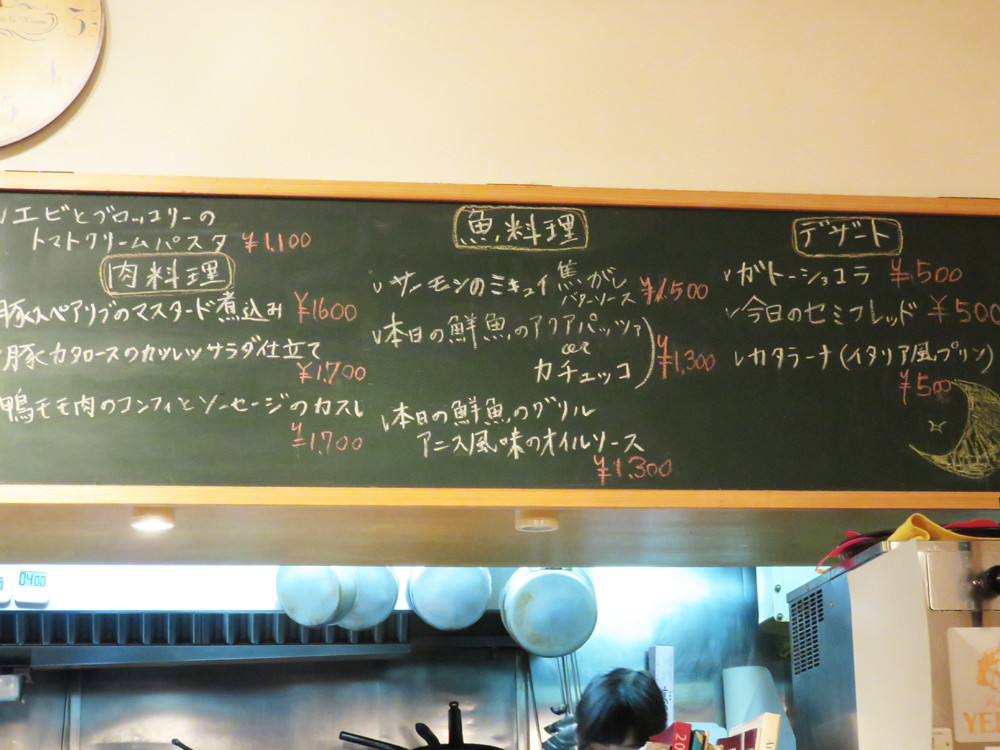 エビとブロッコリーの
トマトクリームパスタ ¥1,100
肉料理
豚スペアリブのマスタード煮込み ¥1600
豚カタロースのカツレツサラダ仕立て
¥1,700
鴨モモ肉のコンフィとソーセージのカスレ
¥1,700
魚料理
サーモンのミキュイ焦がし
バターソース ¥1,500
本日の鮮魚のアクアパッツァ
or
カチェッコ
¥1,300
本日の鮮魚のグリル
アニス風味のオイルソース
¥1,300
デザート
ガトーショコラ ¥500
今日のセミフレッド ¥500
カタラーナ(イタリア風プリン)
¥500
04:00
20
YE